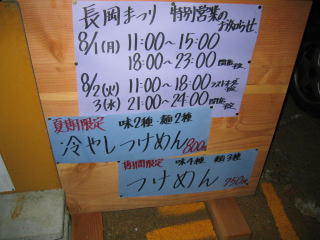 長岡まつり 特別営業のお知らせ
8/1(月) 11:00〜15:00
18:00〜23:00
8/2(火) 11:00〜18:00
3(水) 21:00〜24:00
夏期限定 味2種・麺2種
冷やしつけめん 800円
期間限定 味4種 麺3種
つけめん 750円